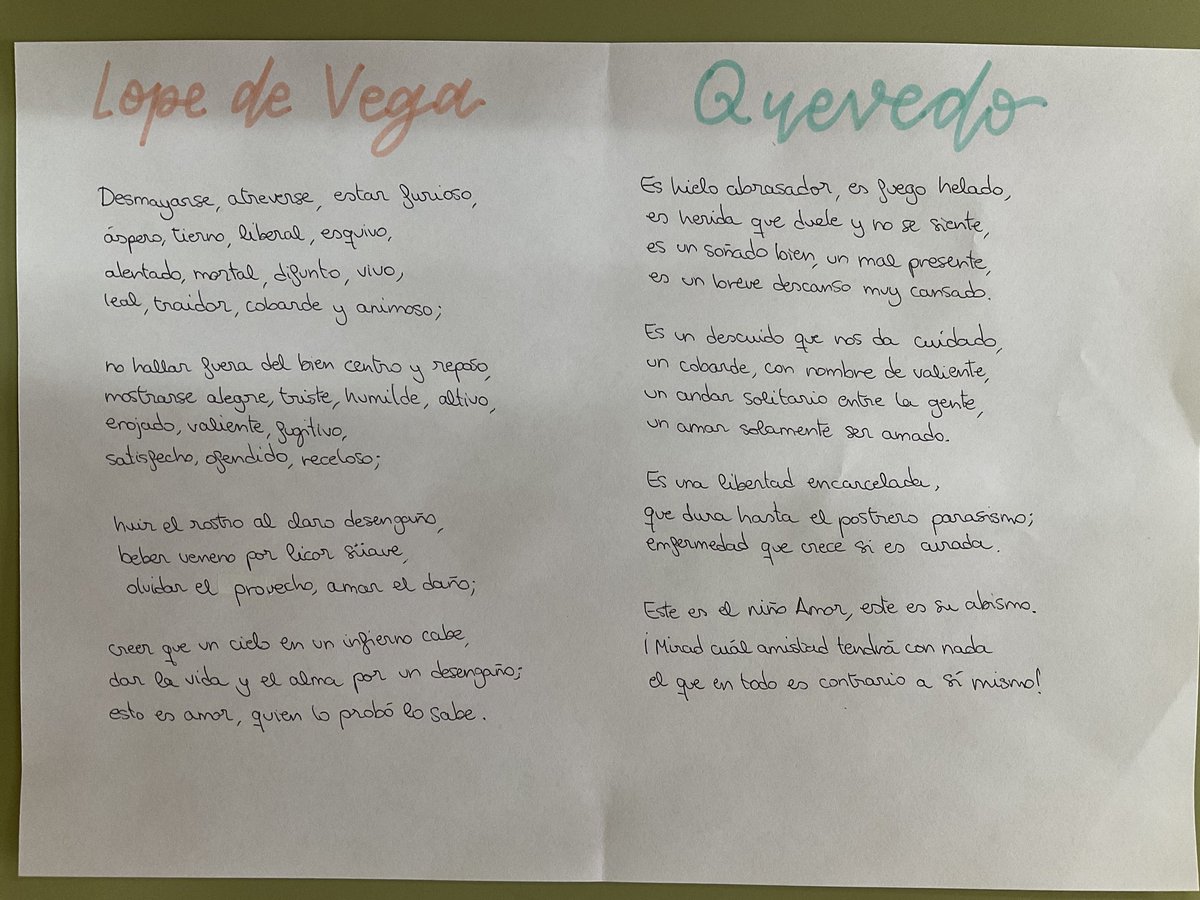 Lope de Vega
Desmayarse, atreverse, estar furioso,
áspero, tierno, liberal, esquivo,
alentado, mortal, difunto, vivo,
leal, traidor, cobarde y animoso;
no hallar fuera del bien centro y reposo,
mostrarse alegre, triste, humilde, altivo,
erojado, valiente, fugitivo,
satisfecho, ofendido, receloso;
huir el rostro al claro desengaño,
beber veneno por licor süave,
olvidar el provecho, amar el daño;
creer que un cielo en un infierno cabe,
dar la vida y el alma por un desengaño;
esto es amor, quien lo probó lo sabe.
Quevedo
Es hielo abrasador, es fuego helado,
es herida que duele y no se siente,
es un soñado bien, un mal presente,
es un breve descanso muy cansado.
Es un descuido que nos da cuidado,
un cobarde, con nombre de valiente,
un andar solitario entre la gente,
un amar solamente ser amado.
Es una libertad encarcelada,
que dura hasta el postrero parasismo;
enfermedad que crece si es curada.
Este es el niño Amor, este es su abismo.
¡Mirad cuál amistad tendrá con nada
el que en todo es contrario a sí mismo!